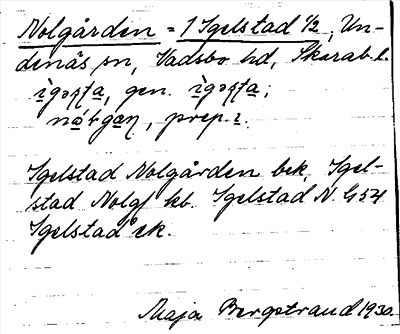 Nolgården = 1 Igelstad 1/2, Un-
denäs sn, Vadsbo hd, Skarab.l.
ìgəʂʈa, gen. ìgəʂʈa;
prep. i.
Igelstad Nolgården bek. Igel-
stad Nolg. kb. Igelstad N. G 54
Igelstad ek.
Maja Bergstrand 1930.